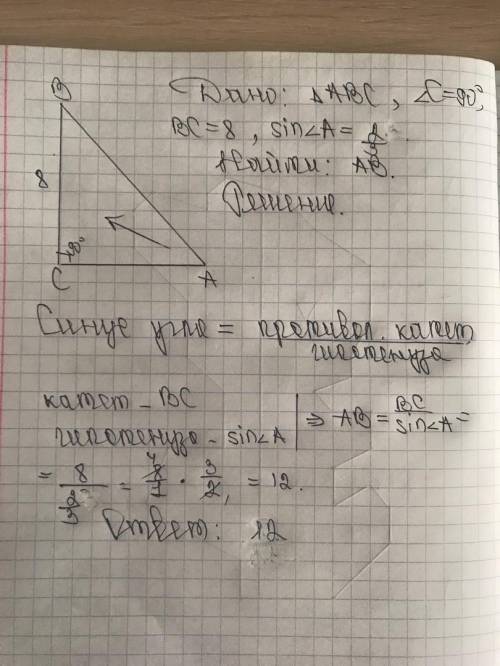 B
Дано: △ABC, ∠C=90°,
BC=8, sin∠A=2/3.
Найти: AB.
Решение.
8
90°
C A
Синус угла = противол. катет / гипотенуза
катет – BC
гипотенуза – sin∠A | ⇒ AB = BC / sin∠A =
= 8 / 2/3 = 8/1 · 3/2 = 12.
Ответ: 12